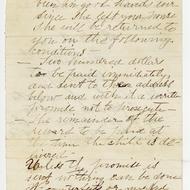 been in good hands ever
since she left your home
She will be returned to
you on the following
conditions —
— Two hundred dollars
to be paid immidiately
and sent to the address
below and with the
promise not to prosecute —
The remainder of the
reward to be paid at
the time the child is de-
livered
Unless promise is
sent nothing can be done